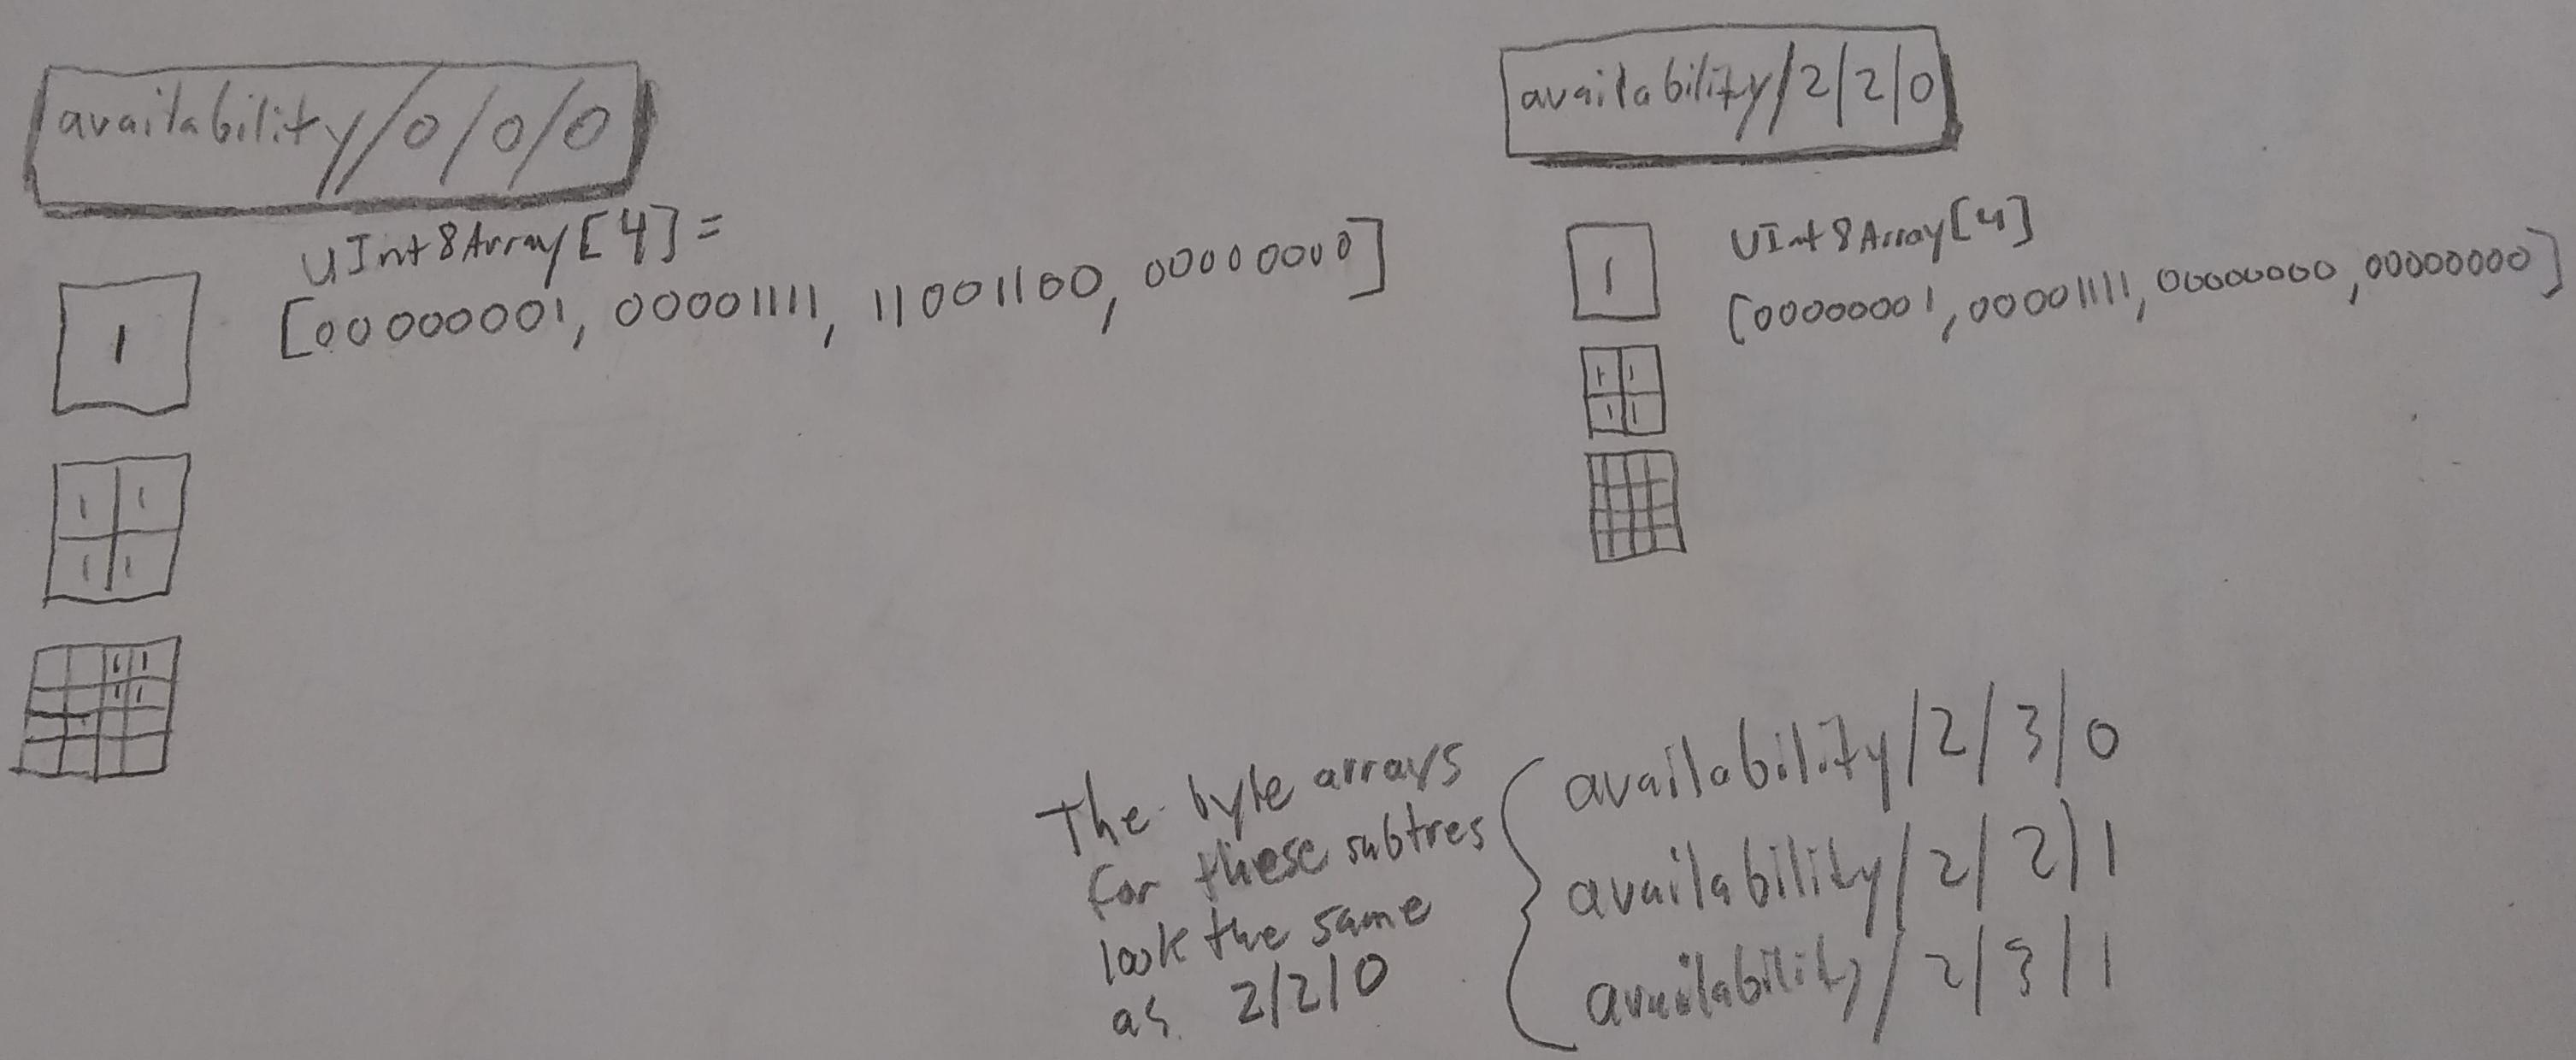 availability/0/0/0
UInt8Array[4] =
[00000001, 00001111, 11001100, 00000000]
1
1 1
1 1
1 1
1 1
availability/2/2/0
UInt8Array[4]
[00000001, 00001111, 00000000, 00000000]
1
1 1
1 1
The byte arrays
for these subtres
look the same
as 2/2/0
availability/2/3/0
availability/2/2/1
availability/2/3/1